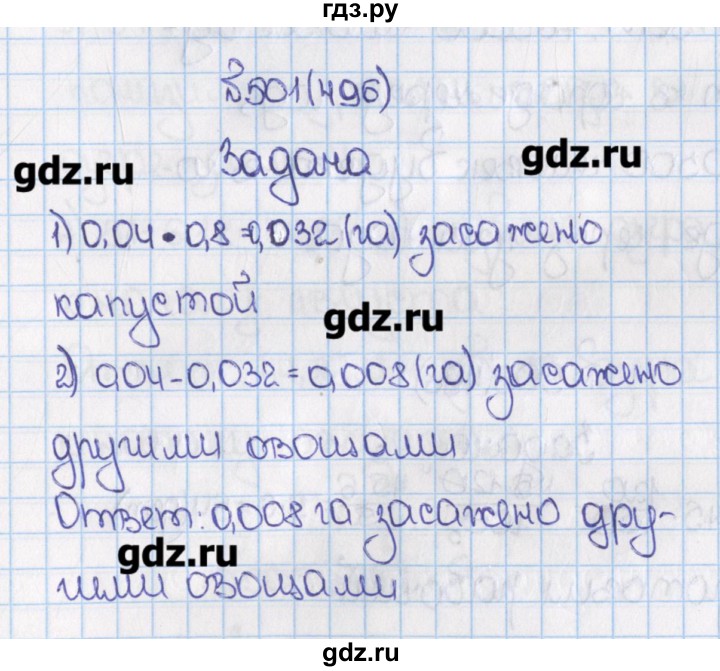 гдз.ру
№501(496)
Задача
gdz.ru gdz.ru
1) 0,04 • 0,8 = 0,032 (га) засажено
капустой
gdz.ru
2) 0,04 - 0,032 = 0,008 (га) засажено
другими овощами
Ответ: 0,008 га засажено дру-
gdz.ru
гими овощами